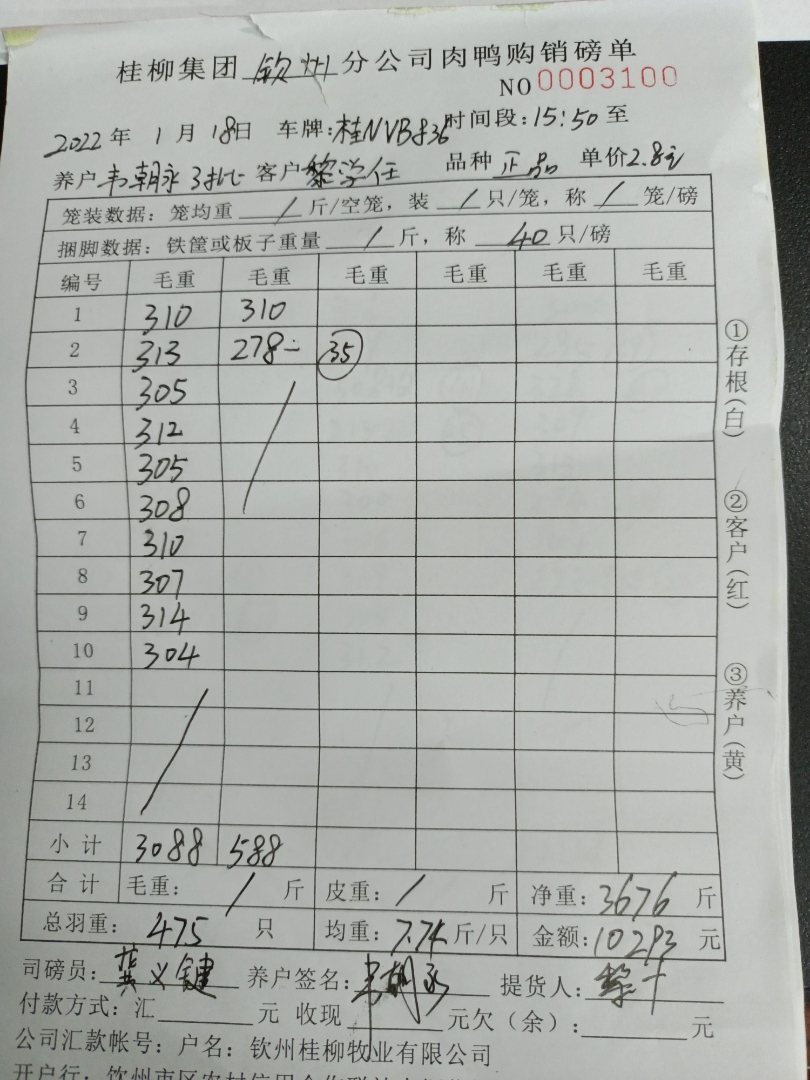 桂柳集团 钦州 分公司肉鸭购销磅单
NO 0003100
2022年 1月 18日 车牌:桂NVB836 时间段:15:50至
养户 韦朝永 3批 客户 黎学任 品种 正品 单价2.8元
笼装数据：笼均重 / 斤/空笼，装 / 只/笼，称 / 笼/磅
捆脚数据：铁筐或板子重量 / 斤，称 40 只/磅
编号 毛重 毛重 毛重 毛重 毛重 毛重
1 310 310
2 313 278- 35
3 305
4 312
5 305
6 308
7 310
8 307
9 314
10 304
11
12
13
14
小计 3088 588
合计 毛重： / 斤 皮重： / 斤 净重：3676 斤
总羽重： 475 只 均重：7.74 斤/只 金额：10293 元
司磅员：龚义键 养户签名：韦朝永 提货人：黎
付款方式：汇 元 收现 元欠（余）： 元
公司汇款帐号：户名：钦州桂柳牧业有限公司
开户行：钦州市区农村信用合作联社
①存根(白)
②客户(红)
③养户(黄)